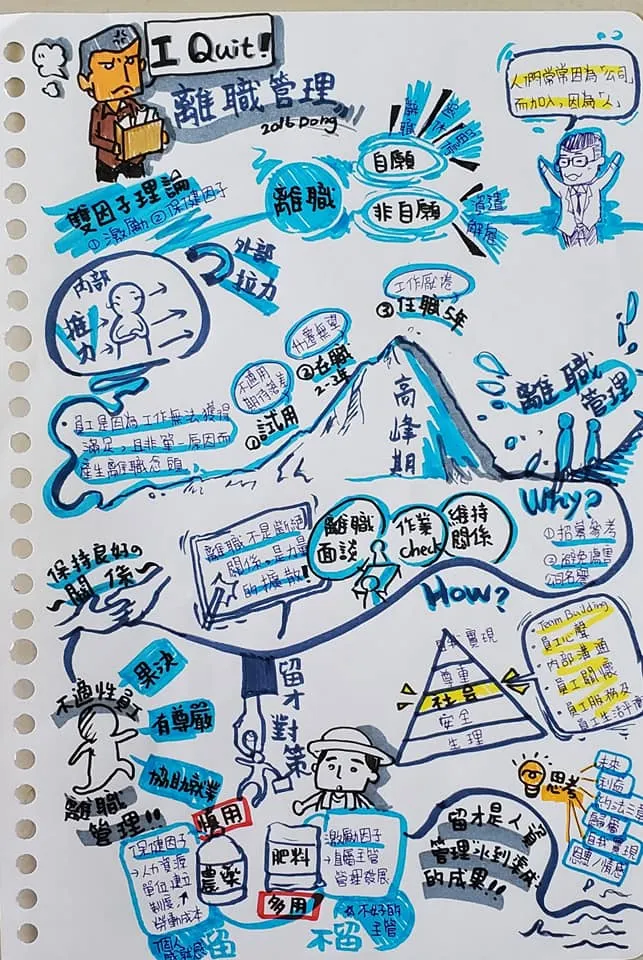 I Quit!
離職管理
2016 Dong
人們常常因為「公司」
而加入，因為「人」
離職
自願
離職
退休
非自願
資遣
解雇
雙因子理論
①激勵②保健因子
內部
推力
外部
拉力
員工是因為工作無法獲得
滿足，且非單一原因而
產生離職念頭
不適用
期待落差
①試用
升遷無望
②在職
2-3年
工作厭倦
③任職5年
高峰期
離職
管理
Why?
①招募參考
②避免傷害
公司名譽
離職
面談
作業
check
維持
關係
離職不是斷絕
關係，是力量
的擴散!
保持良好の
~關係~
How?
自我實現
尊重
社會
安全
生理
Team Building
・員工心聲
・內部溝通
・員工關懷
・員工服務及
員工生活平衡
留才對策
不適性員工
離職
管理!!
果決
有尊嚴
協助就業
慎用
農藥
保健因子
→人力資源
單位建立
制度
勞動成本
個人
肥料
多用
激勵因子
→直屬主管
管理發展
不好的
主管
留
不留
留才是人資
管理水到渠成
的成果!!
思考
未來
利益
約法三章
自我實現
恩惠/情感